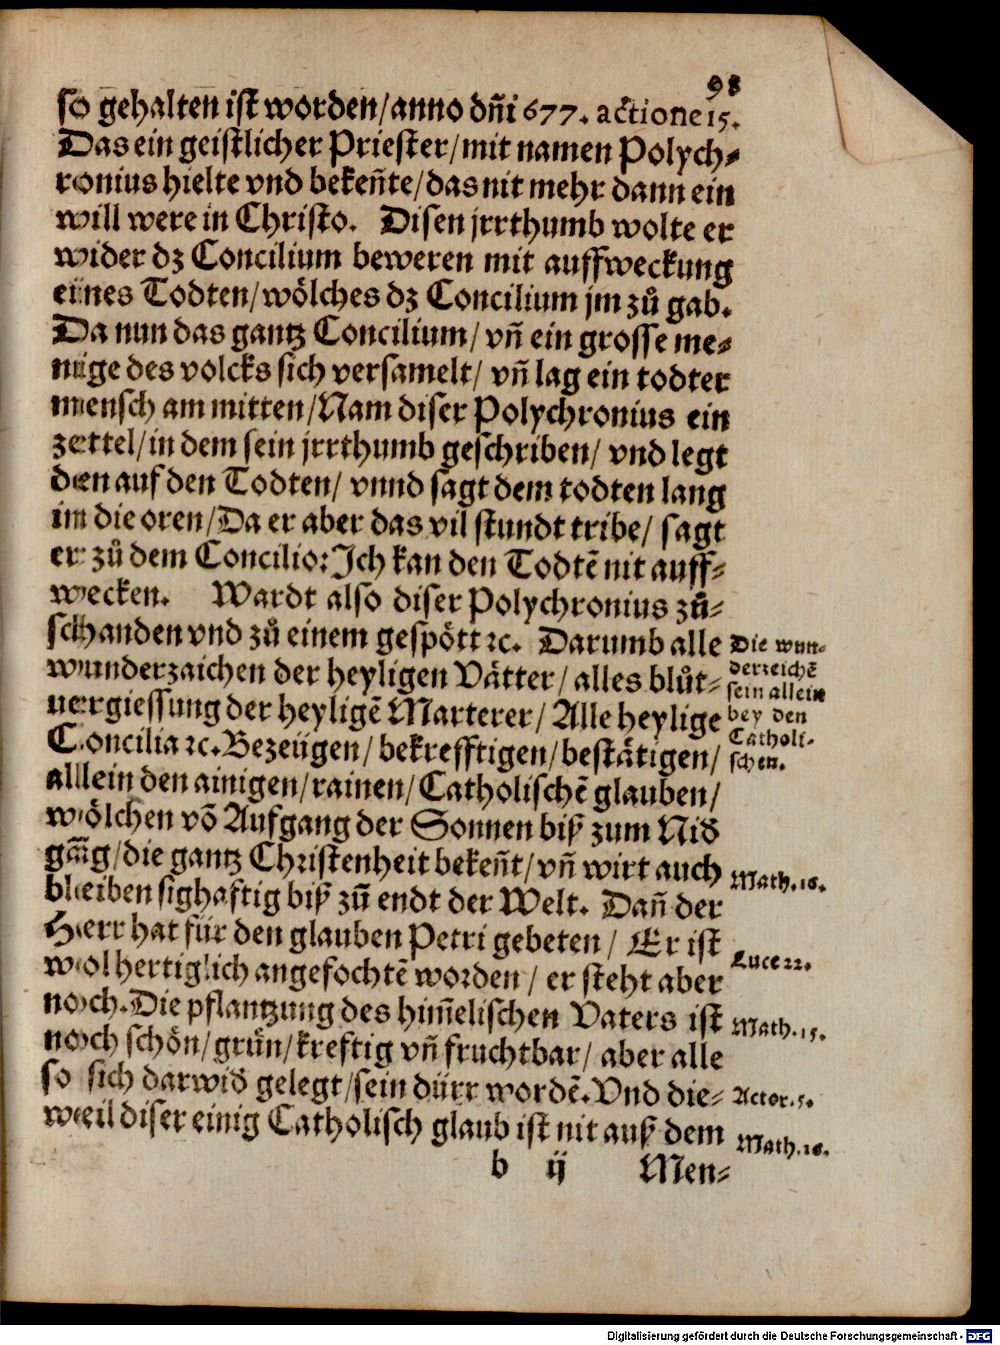 98
so gehalten ist worden/anno dn̄i 677. actione 15.
Das ein geistlicher Priester/mit namen Polych⸗
ronius hielte vnd bekeñte/das nit mehr dann ein
will were in Christo. Disen jrrthumb wolte er
wider dz Concilium beweren mit auffweckung
eines Todten/wölches dz Concilium jm zů gab.
Da nun das gantz Concilium/vñ ein grosse me⸗
nige des volcks sich versamelt/vñ lag ein todter
mensch am mitten/Nam diser Polychronius ein
zettel/in dem sein jrrthumb geschriben/vnd legt
den auf den Todten/vnnd sagt dem todten lang
in die oren/Da er aber das vil stundt tribe/sagt
er zů dem Concilio:Ich kan den Todtē nit auff⸗
wecken. Wardt also diser Polychronius zů⸗
schanden vnd zů einem gespött ꝛc. Darumb alle
wunderzaichen der heyligen Vätter/alles blůt⸗
vergiessung der heyligē Marterer/Alle heylige
Concilia ꝛc.Bezeügen/bekrefftigen/bestätigen/
allein den ainigen/rainen/Catholischē glauben/
wölchen vō Aufgang der Sonnen biß zum Nid
gāg/die gantz Christenheit bekeñt/vñ wirt auch
bleiben sighaftig biß zů endt der Welt. Dañ der
Herr hat für den glauben Petri gebeten/Er ist
wol hertiglich angefochtē worden/er steht aber
noch.Die pflantzung des him̄elischen Vaters ist
noch schön/grün/kreftig vñ fruchtbar/aber alle
so sich darwid gelegt/sein dürr wordē.Vnd die⸗
weil diser einig Catholisch glaub ist nit auß dem
b ij Men⸗
Die wun⸗
derzeichē
sein allein
bey den
Catholi⸗
schen.
Math.16.
Luce 22.
Math.15.
Actor.5.
Math.16.
Digitalisierung gefördert durch die Deutsche Forschungsgemeinschaft - DFG